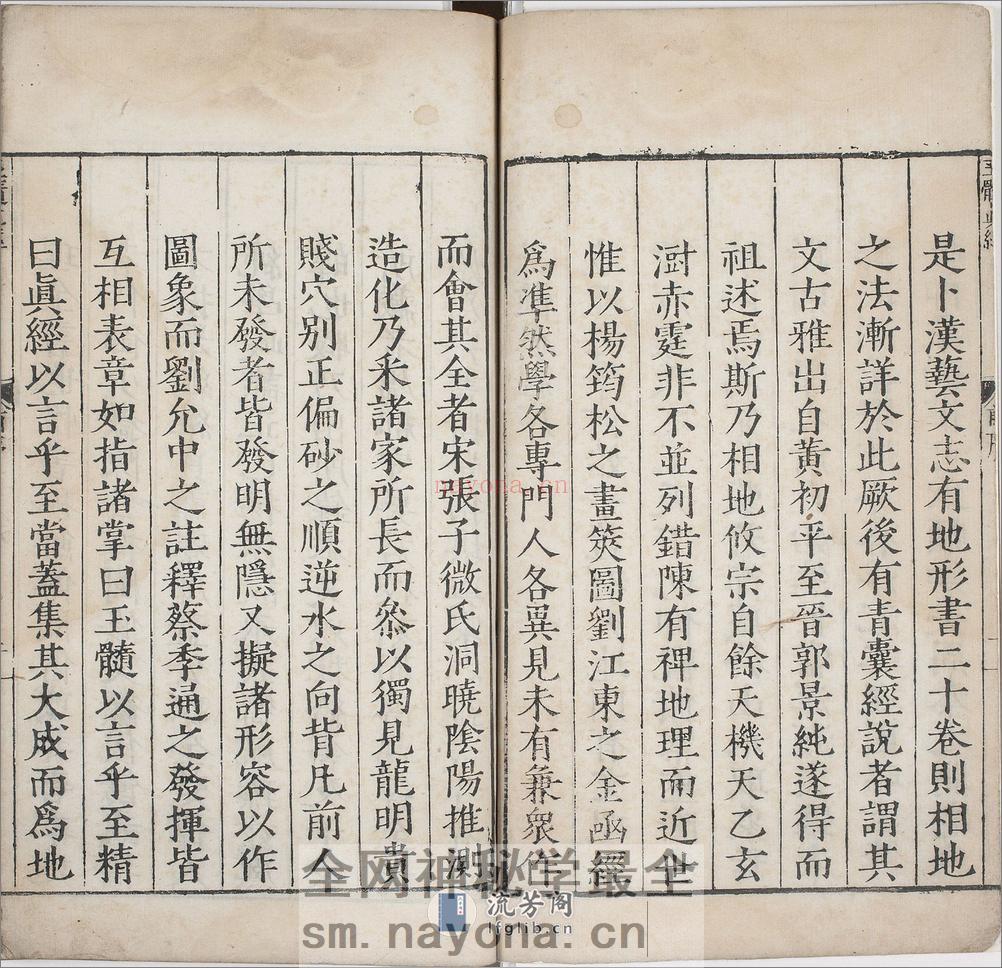 是卜漢藝文志有地形書二十卷則相地
之法漸詳於此厥後有青囊經說者謂其
文古雅出自黃初平至晉郭景純遂得而
祖述焉斯乃相地攸宗自餘天機天乙玄
澍赤霆非不並列錯陳有裨地理而近世
惟以楊筠松之畫筴圖劉江東之金函經
爲準然學各專門人各異見未有兼衆作
而會其全者宋張子微氏洞曉陰陽推測
造化乃釆諸家所長而叅以獨見龍明貴
賤穴别正偏砂之順逆水之向背凡前人
所未發者皆發明無隱又擬諸形容以作
圖象而劉允中之註釋蔡季通之發揮皆
互相表章如指諸掌曰玉髓以言乎至精
曰眞經以言乎至當蓋集其大成而爲地
nayona.cn
全网神秘学最全
流芳阁
lfglib.cn
sm.nayona.cn